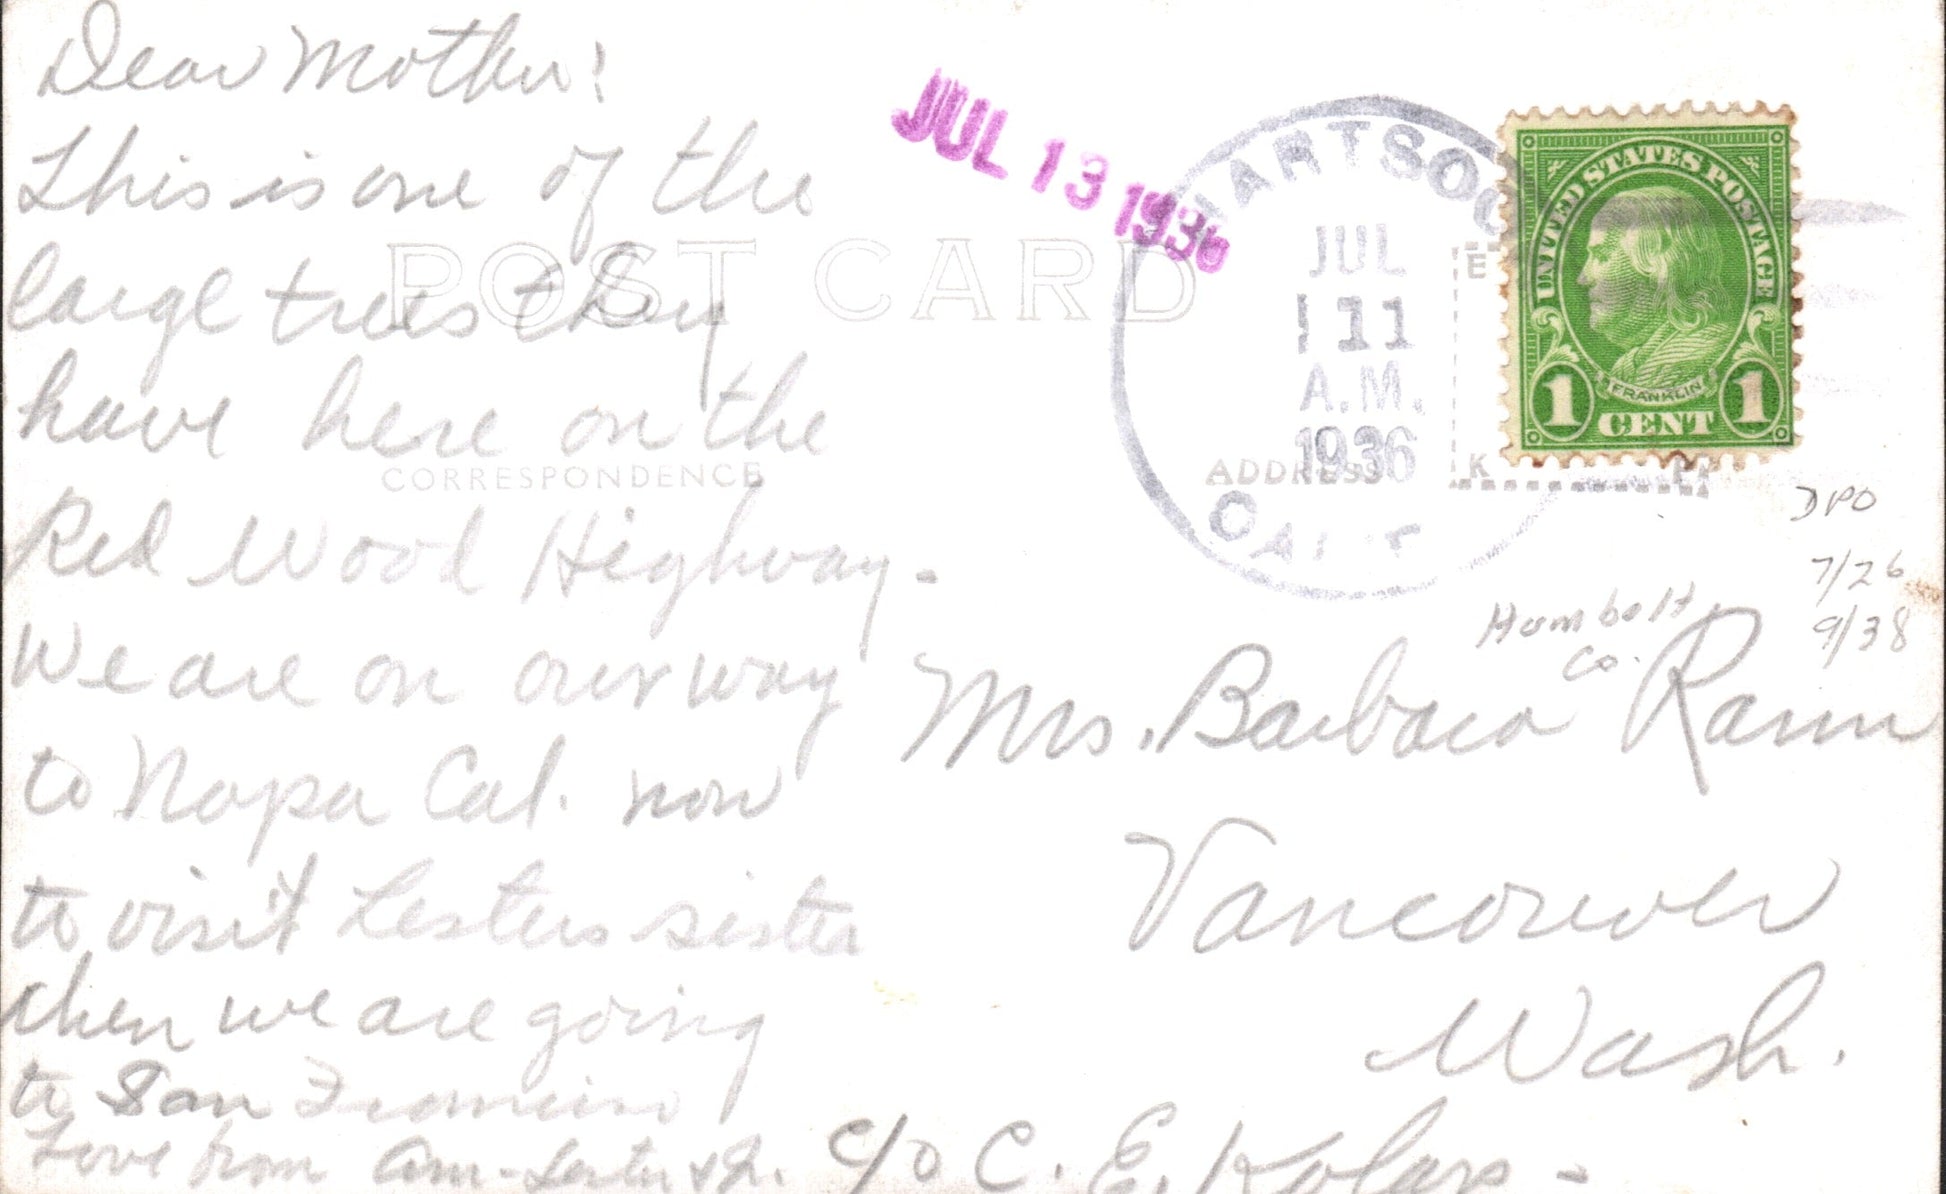 Dear Mother!
This is one of the
large trees they
have here on the
Red Wood Highway.
We are on our way
to Napa Cal. now
to visit Lesters sister
then we are going
to San Francisco
Love from Ann-Lester &
POST CARD
CORRESPONDENCE
ADDRESS
JUL 13 1936
HARTSOO
JUL
11
A.M.
1936
CALIF
UNITED STATES POSTAGE
FRANKLIN
1 CENT 1
DPO
7/26
9/38
Humbolt
Co.
Mrs. Barbara Rann
Vancouver
Wash.
c/o C. E. Kolars -